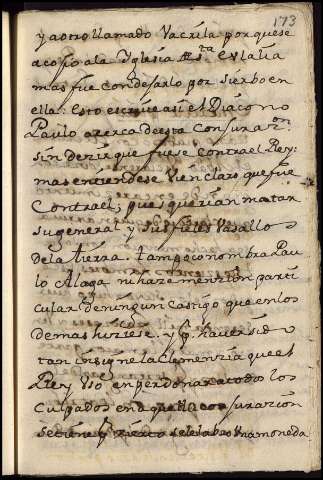 173
y aotro llamado Vacrila porquese
acosio ala Yglesia de Sta Eulalia
mas fue condesarlo por sierbo en
ella: Esto escrive asi el Diacono
Paulo acerca deesta Conjuraon
sin dezir que fuese contra el Rey:
mas entiendese Vien claro que fue
Contra el, pues querian matar
su general y sus fieles Vasallos
Dela tierra. tampoco nombra Pau
lo Alaga ni haze menzion parti
cular De ningun Castigo que en los
demas hiziese. y por haver sido
tan insigne la Clemenzia que el
Rey Uso en perdonar a todos los
Culpados en aquella conjurazion
se tiene por zierto se le labro Una moneda